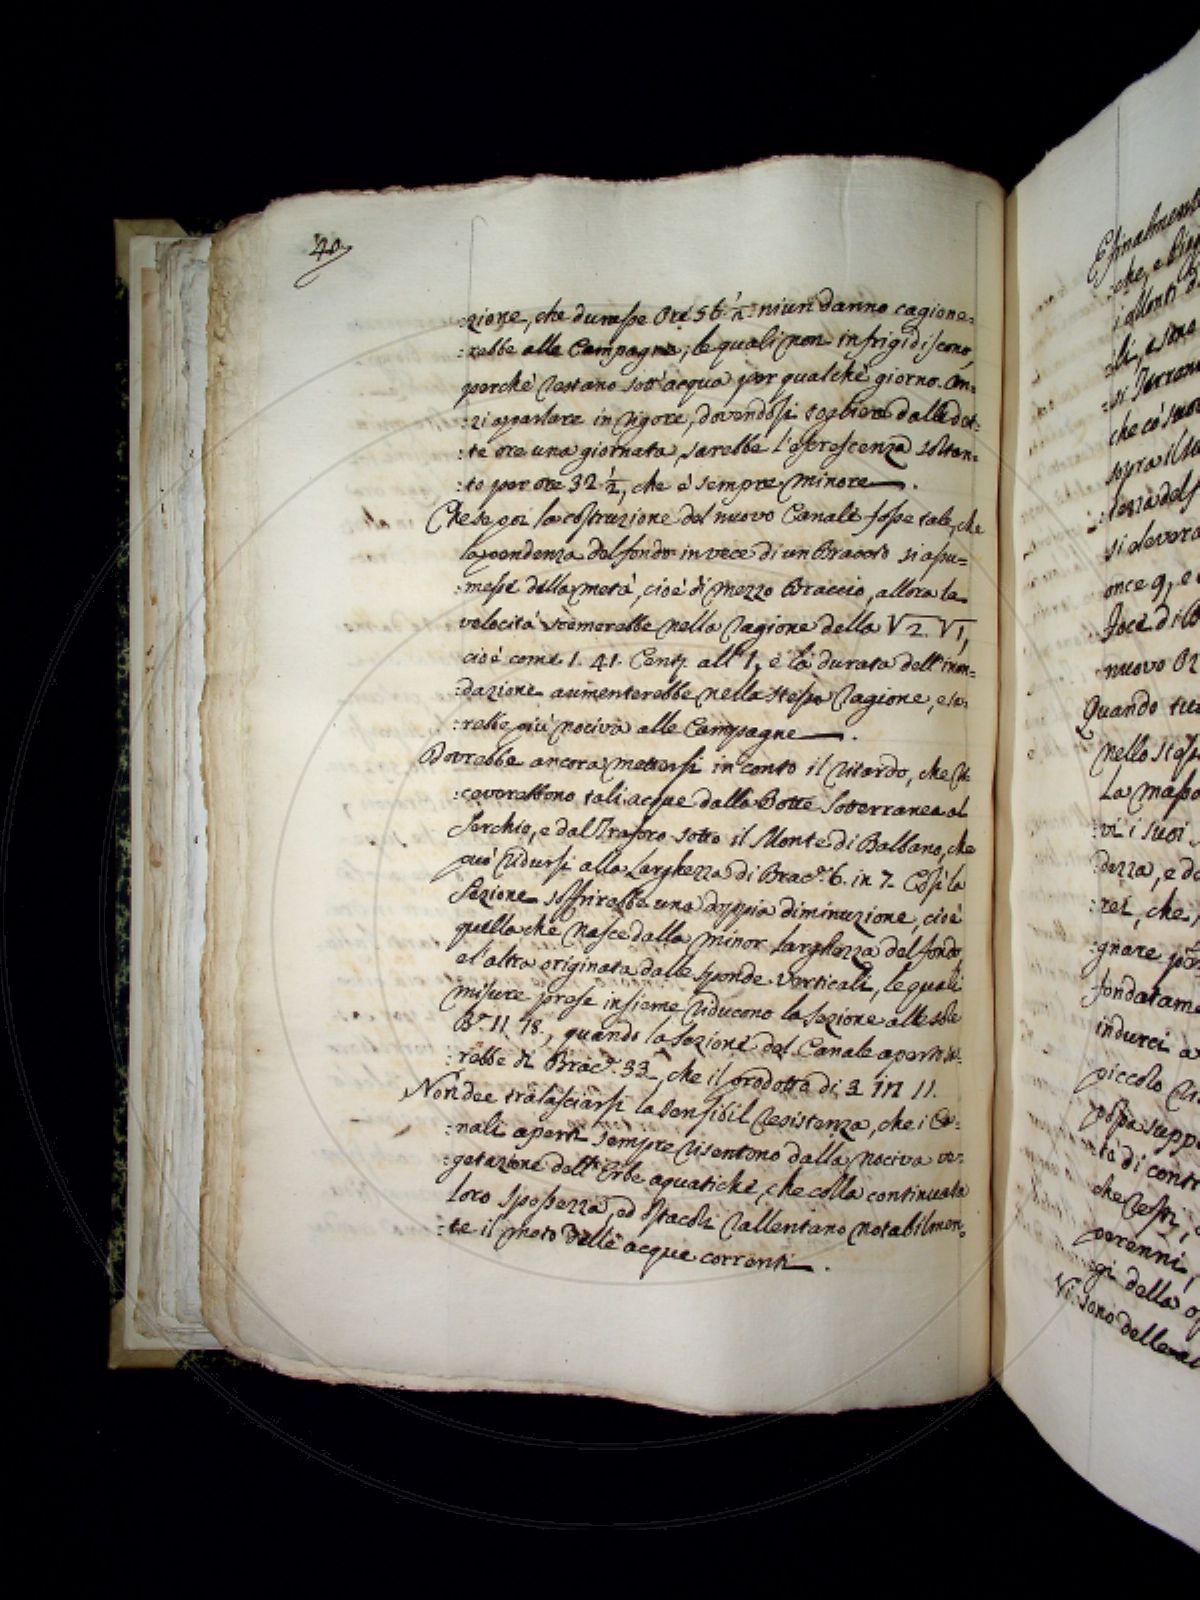 40
:zione, che durasse Ore 56. ½: niun danno cagione:
:rebbe alle Campagne; le quali non infrigidiscono,
perchè restano sott'acqua per qualche giorno. An:
:zi a parlare in rigore, dovendosi togliere dalle det:
:te ore una giornata, sarebbe l'escrescenza soltan:
:to per ore 32 ½, che è sempre minore.
Che se poi la costruzione del nuovo Canale fosse tale, che
la pendenza del fondo in vece di un Braccio si assu=
:messe della metà, cioè di mezzo Braccio, allora la
velocità scemerebbe nella ragione della √2. √1,
cioè come 1. 41. Cent. all'1, e la durata dell'inon:
:dazione aumenterebbe nella stessa ragione, e sa:
:rebbe più nociva alle Campagne.
Dovrebbe ancora mettersi in conto il ritardo, che ri
:ceverebbono tali acque dalla Botte Sotterranea al
Serchio, e dal Traforo sotto il Monte di Balbano, che
può ridursi alla Larghezza di Brac. 6. in 7. Così la
Sezione soffrirebbe una doppia diminuzione, cioè
quella che nasce dalla minor Larghezza del fondo,
e l'altra originata dalle sponde verticali, le quali
misure prese insieme riducono la Sezione alle sole
Br. 11. 18., quando la Sezione del Canale aperto sa:
:rebbe di Brac. 33, che il prodotto di 3 in 11.
Non dee tralasciarsi la sensibil resistenza, che i Ca:
:nali aperti sempre risentono dalla nociva ve:
:getazione dell'Erbe aquatiche, che colla continuata
loro spessezza, ed ostacoli rallentano notabilmen:
:te il moto delle acque correnti.
E finalmente
che, e
i Monti
:si Terreni
sopra il
si dovera
once 9, e
nuovo
Quando tut
nello stess
La mass
:vi i suoi
:dezza, e da
:rei, che,
gnare
fondatame
indurci a
piccolo
possa supp
:tà di contr
che
perenni,
:gi della
Vi sono delle